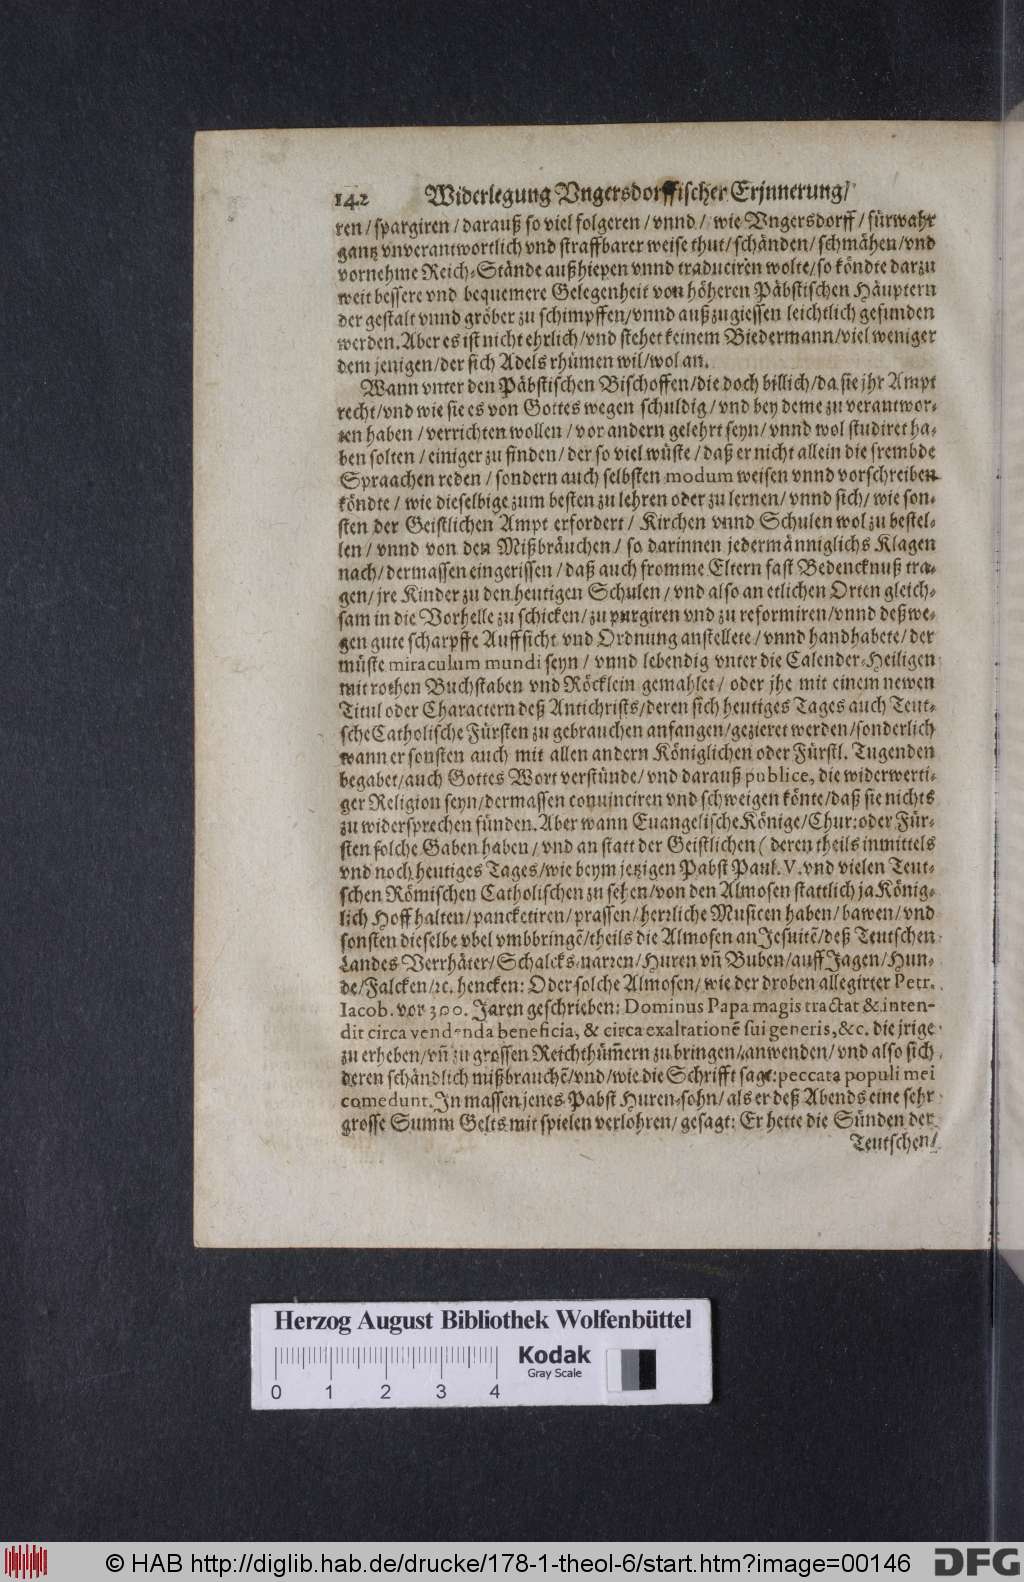 142 Widerlegung Vngersdorffischer Erjnnerung/
ren / spargiren / darauß so viel folgeren / vnnd / wie Vngersdorff / fürwahr
gantz vnverantwortlich vnd straffbarer weise thut / schänden / schmähen / vnd
vornehme Reich-Stände außhiepen vnnd traduciren wolte / so köndte darzu
weit bessere vnd bequemere Gelegenheit von höheren Päbstischen Häuptern
der gestalt vnnd gröber zu schimpffen / vnnd außzugiessen leichtlich gefunden
werden. Aber es ist nicht ehrlich / vnd stehet keinem Biedermann / viel weniger
dem jenigen / der sich Adels rhümen wil / wol an.
Wann vnter den Päbstischen Bischoffen / die doch billich / da sie jhr Ampt
recht / vnd wie sie es von Gottes wegen schuldig / vnd bey deme zu verantwor-
ten haben / verrichten wollen / vor andern gelehrt seyn / vnnd wol studiret ha-
ben solten / einiger zu finden / der so viel wüste / daß er nicht allein die frembde
Spraachen reden / sondern auch selbsten modum weisen vnnd vorschreiben
köndte / wie dieselbige zum besten zu lehren oder zu lernen / vnnd sich / wie son-
sten der Geistlichen Ampt erfordert / Kirchen vnnd Schulen wol zu bestel-
len / vnnd von den Mißbräuchen / so darinnen jedermänniglichs Klagen
nach / dermassen eingerissen / daß auch fromme Eltern fast Bedencknuß tra-
gen / jre Kinder zu den heutigen Schulen / vnd also an etlichen Orten gleich-
sam in die Vorhelle zu schicken / zu purgiren vnd zu reformiren / vnnd deßwe-
gen gute scharpffe Auffsicht vnd Ordnung anstellete / vnnd handhabete / der
müste miraculum mundi seyn / vnnd lebendig vnter die Calender-Heiligen
mit rothen Buchstaben vnd Röcklein gemahlet / oder jhe mit einem newen
Titul oder Charactern deß Antichrists / deren sich heutiges Tages auch Teut-
sche Catholische Fürsten zu gebrauchen anfangen / gezieret werden / sonderlich
wann er sonsten auch mit allen andern Königlichen oder Fürstl. Tugenden
begabet / auch Gottes Wort verstünde / vnd darauß publice, die widerwerti-
ger Religion seyn / dermassen conuinciren vnd schweigen könte / daß sie nichts
zu widersprechen fünden. Aber wann Euangelische Könige / Chur: oder Für-
sten solche Gaben haben / vnd an statt der Geistlichen ( deren theils inmittels
vnd noch heutiges Tages / wie beym jetzigen Pabst Paul. V. vnd vielen Teut-
schen Römischen Catholischen zu sehen / von den Almosen stattlich ja König-
lich Hoff halten / panckctiren / prassen / herrliche Musicen haben / bawen / vnd
sonsten dieselbe vbel vmbbringẽ / theils die Almosen an Jesuitẽ / deß Teutschen
Landes Verrhäter / Schalcks-narren / Huren vñ Buben / auff Jagen / Hun-
de / Falcken / ꝛc. hencken: Oder solche Almosen / wie der droben allegirter Petr.
Iacob. vor 300. Jaren geschrieben: Dominus Papa magis tractat & inten-
dit circa vendenda beneficia, & circa exaltationẽ sui generis, &c. die jrige
zu erheben / vñ zu grossen Reichthüm̃ern zu bringen / anwenden / vnd also sich
deren schändlich mißbrauchẽ / vnd / wie die Schrifft sagt: peccata populi mei
comedunt. Jn massen jenes Pabst Huren-sohn / als er deß Abends eine sehr
grosse Summ Gelts mit spielen verlohren / gesagt: Er hette die Sünden der
Teutschen /
Herzog August Bibliothek Wolfenbüttel
Kodak
Gray Scale
0 1 2 3 4
© HAB http://diglib.hab.de/drucke/178-1-theol-6/start.htm?image=00146
DFG